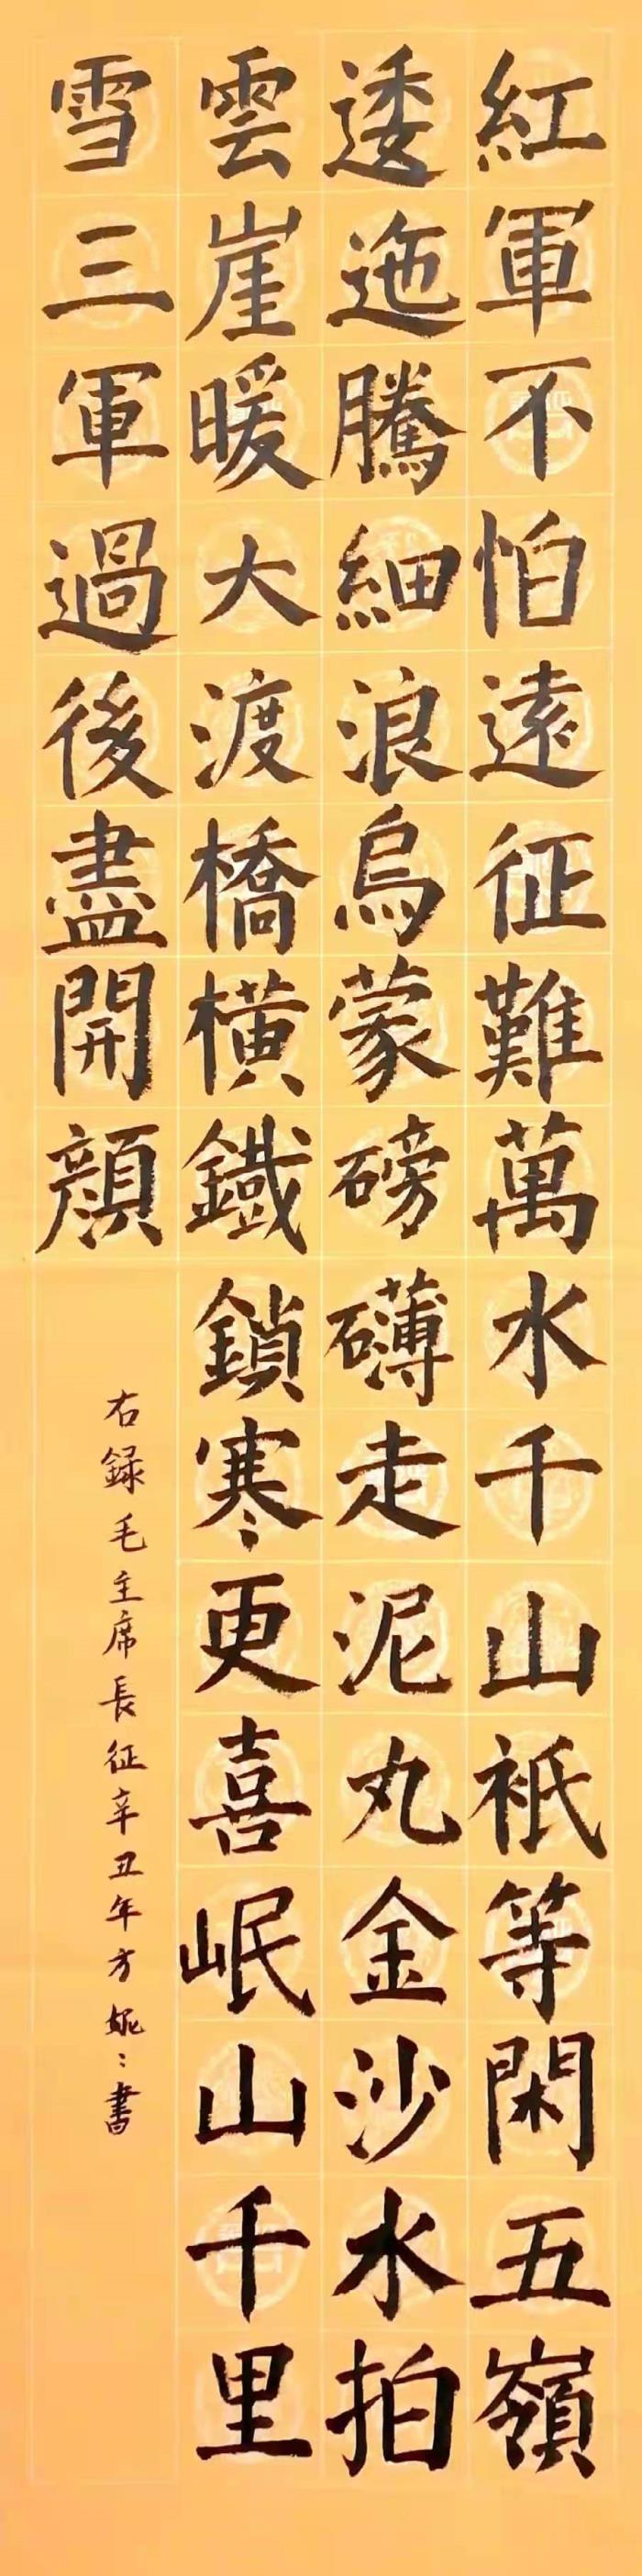 紅軍不怕遠征難萬水千山祇等閑五嶺
逶迤騰細浪烏蒙磅礴走泥丸金沙水拍
雲崖暖大渡橋橫鐵鎖寒更喜岷山千里
雪三軍過後盡開顔
右録毛主席長征辛丑年方妮〻書